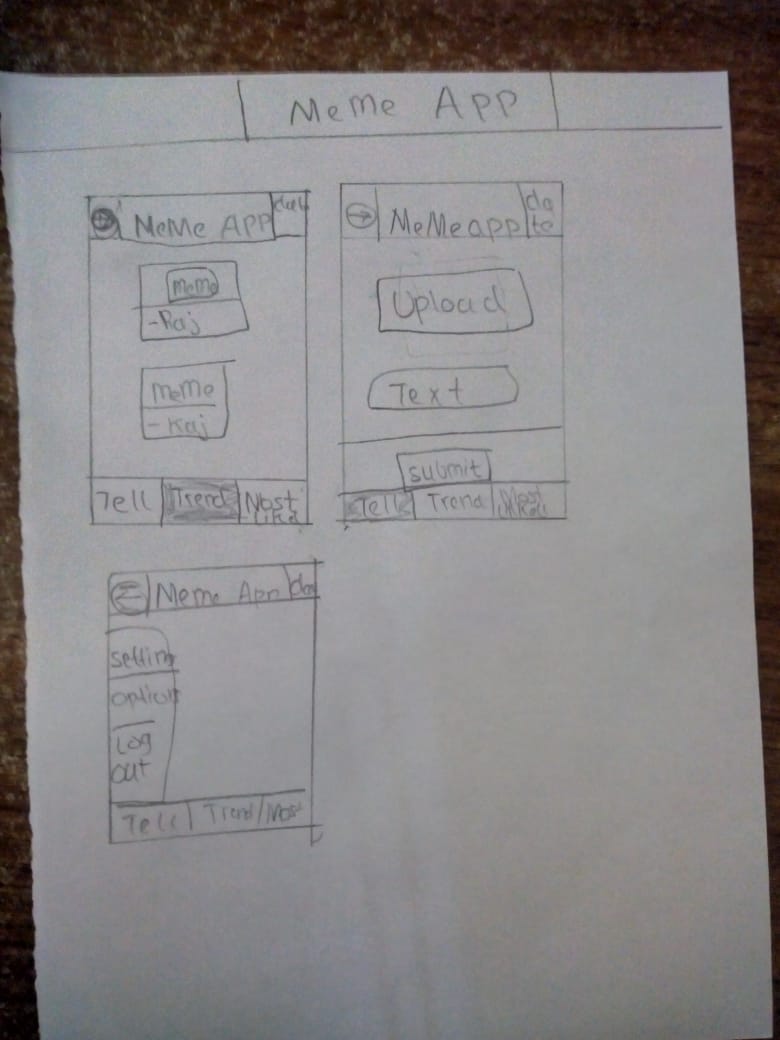 Meme App
MeMe APP
meme
-Raj
meme
- Raj
Tell Trend Most
Liked
MeMe app da
te
Upload
Text
submit
Tell Trend Most
Liked
Meme App
setting
option
Log
out
Tell Trend Most